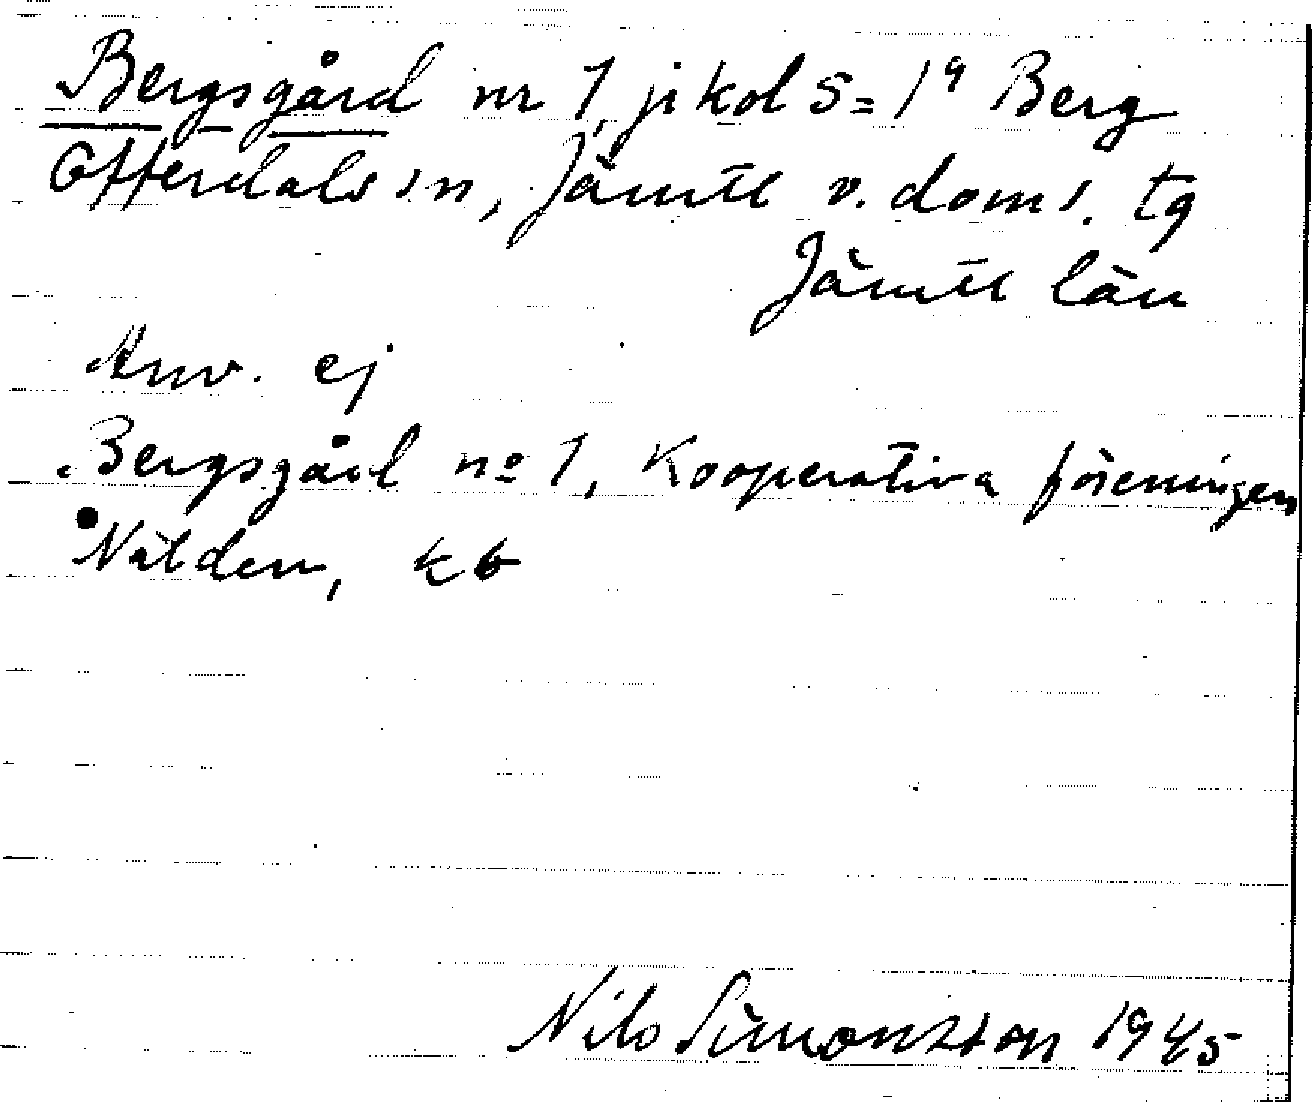 Bergsgård nr 1, jikol S = 1ª Berg
Offerdals sn, Jämtl v. doms. tg
Jämtl län
Anv. ej
Bergsgård nº 1, Kooperativa föreningen
Nälden, kb
Nils Simonsson 1945